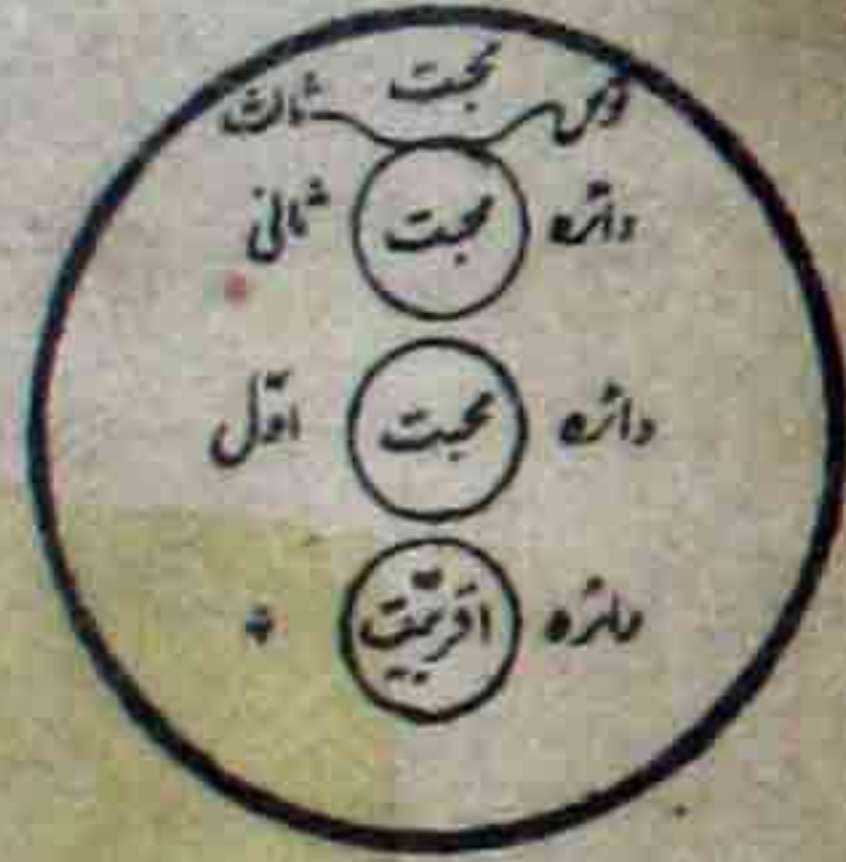 قوس محبت ثالث
دائره محبت ثانی
دائره محبت اوّل
دائره اقربیّت